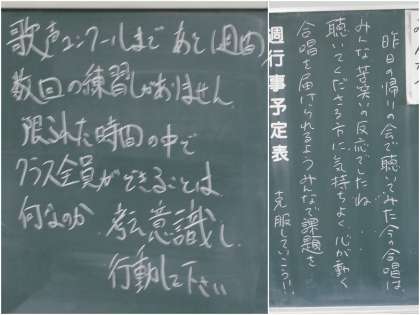 歌声コンクールまで あと1週間
数回の練習しかありません
限られた時間の中で
クラス全員ができることは
何なのか 考え意識し
行動して下さい
昨日の帰りの会で聴いてみた今の合唱は、
みんな苦笑いの反応でしたね…
聴いてくださる方に気持ちよく心が動く
合唱を届けられるようみんなで課題を
克服していこう!!
週行事予定表